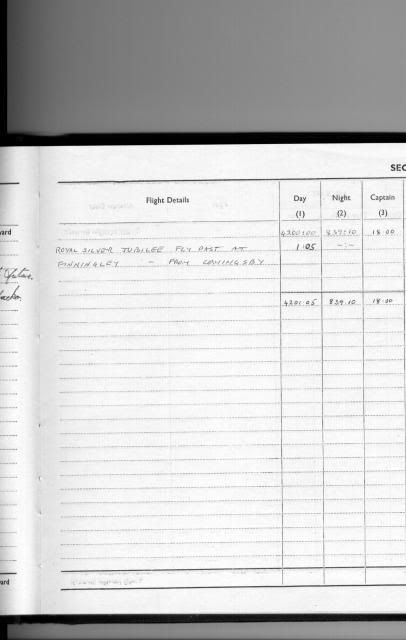 SEC
Flight Details Day Night Captain
(1) (2) (3)
ward
4200:00 839:10 18:00
ROYAL SILVER JUBILEE FLY PAST AT 1:05 -:-
FINNINGLEY - FROM CONINGSBY
4201:05 839:10 18:00
ard